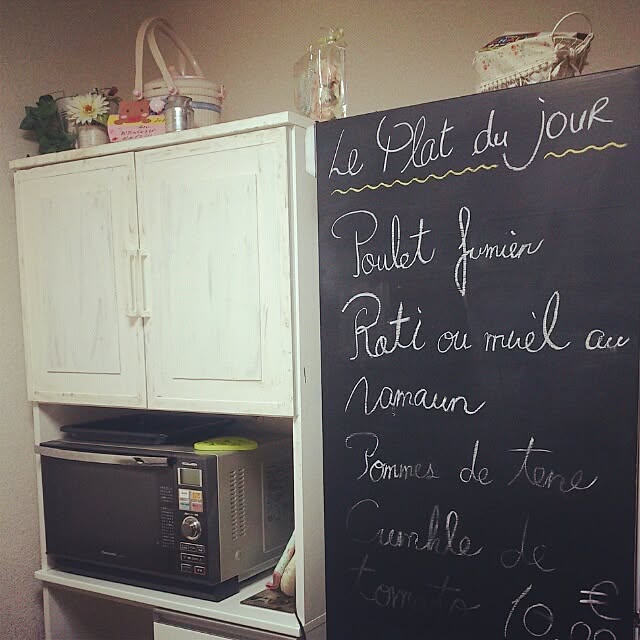 Le Plat du jOUR
Poulet fumièn
Roti ou muèl au
ramaun
Pommes de tene
Cumhle de
tomats
10 €